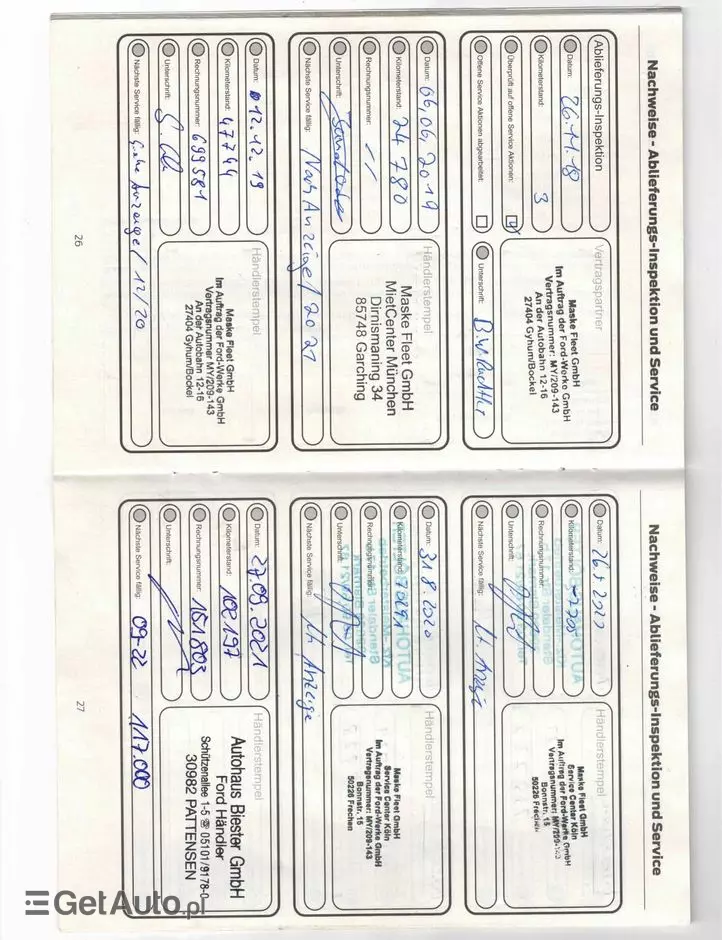 Nachweise - Ablieferungs-Inspektion und Service
Ablieferungs-Inspektion
Datum: 26.11.18
Kilometerstand: 3
Überprüft auf offene Service Aktionen:
Offene Service Aktionen abgearbeitet:
Vertragspartner
Maske Fleet GmbH
Im Auftrag der Ford-Werke GmbH
Vertragsnummer: MY/209-143
An der Autobahn 12-16
27404 Gyhum/Bockel
Unterschrift:
Datum: 06.06.2019
Kilometerstand: 24780
Rechnungsnummer: --
Unterschrift:
Nächste Service fällig: Nach Anzeige / 2021
Händlerstempel
Maske Fleet GmbH
MietCenter München
Dirnismaning 34
85748 Garching
Datum: 12.12.19
Kilometerstand: 47744
Rechnungsnummer: 699581
Unterschrift:
Nächste Service fällig: Siehe Anzeige / 12/20
Händlerstempel
Maske Fleet GmbH
Im Auftrag der Ford-Werke GmbH
Vertragsnummer MY/209-143
An der Autobahn 12-16
27404 Gyhum/Bockel
26
Nachweise - Ablieferungs-Inspektion und Service
Datum:
Kilometerstand:
Rechnungsnummer:
Unterschrift:
Nächste Service fällig:
Händlerstempel
Maske Fleet GmbH
Service Center Köln
Im Auftrag der Ford-Werke GmbH
Vertragsnummer: MY/209-143
Bonnstr. 15
50226 Frechen
Datum: 31.8.2020
Kilometerstand:
Rechnungsnummer:
Unterschrift:
Nächste Service fällig: Anzeige
Händlerstempel
Maske Fleet GmbH
Service Center Köln
Im Auftrag der Ford-Werke GmbH
Vertragsnummer: MY/209-143
Bonnstr. 15
50226 Frechen
Datum: 27.09.2021
Kilometerstand: 102197
Rechnungsnummer: 151803
Unterschrift:
Nächste Service fällig: 09-22 117.000
Händlerstempel
Autohaus Biester GmbH
Ford Händler
Schützenallee 1-5 ☏ 05101/9178-0
30982 PATTENSEN
27
GetAuto.pl